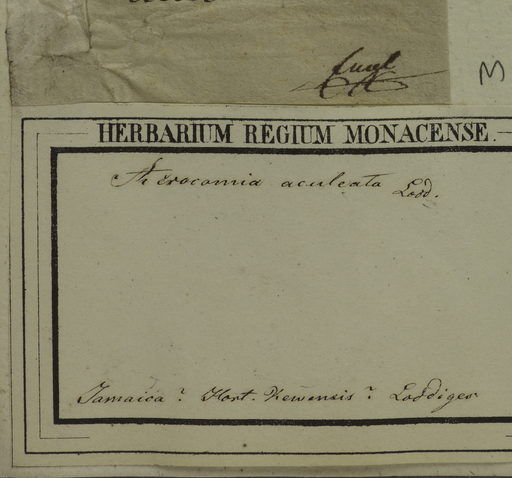 HERBARIUM REGIUM MONACENSE.
Acrocomia aculeata Lodd.
Jamaica? Hort. Kewensis? Loddiges